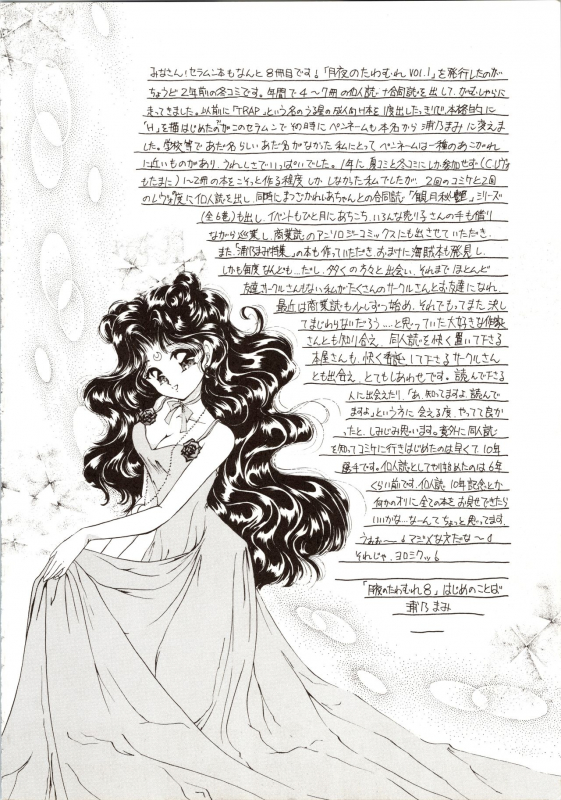 みなさん!セラムン本もなんと8冊目です。「月夜のたわむれVOL.1」を発行したのが
ちょうど2年前の冬コミです。年間で4〜7冊の個人誌+合同誌を出して、がむしゃらに
走ってきました。以前に「TRAP」という名のうる星の成人向H本を1度出したっきりで、本格的に
「H」を描はじめたのがこのセラムンでその時にペンネームも本名から浦乃まみに変えま
した。学校等であだ名らしいあだ名がなかった私にとってペンネームは一種のあこがれ
に近いものがあり、うれしさでいっぱいでした。1年に夏コミと冬コミにしか参加せず(Cレヴォ
もたまに)1〜2冊の本をこそっと作る程度しかしなかった私でしたが、2回のコミケと2回
のレヴォ度に個人誌を出し、同時にまつざかれいあちゃんとの合同誌「観月秘艶」シリーズ
(全6巻)も出し、イベントもひと月にあちこち、いろんな売り子さんの手も借り
ながら巡業し、商業誌のアンソロジーコミックスにも出させていただき、
また、「浦乃まみ特集」の本も作っていただき、おまけに海賊本も発見し、
しかも何度なんども…だし、多くの方々と出会い、それまでほとんど
友達サークルさんもいない私がたくさんのサークルさんとお友達になれ、
最近は商業誌も少しずつ始め、それでもってまた、決し
てまじわりないだろう……と思っていた大好きな作家
さんとも知り合え、同人誌を快く置いて下さる
本屋さんも、快く委託して下さるサークルさん
とも出合え、とてもしあわせです。読んで下さる
人に出会えたり、「あ、知ってますよ、読んで
ますよ」という方に会える度、やってて良か
ったと、しみじみ思います。意外に同人誌
を知ってコミケに行きはじめたのは早くて、10年
選手です。個人誌としてやり始めたのは6年
くらい前です。個人誌10年記念とか
何かのオリに全ての本をお見せできたら
いいかな…な〜んてちょっと思ってます。
うぉぉ〜マジメな文だな〜
それじゃ、ヨロミクッ
「月夜のたわむれ8」はじめのことば
浦乃まみ